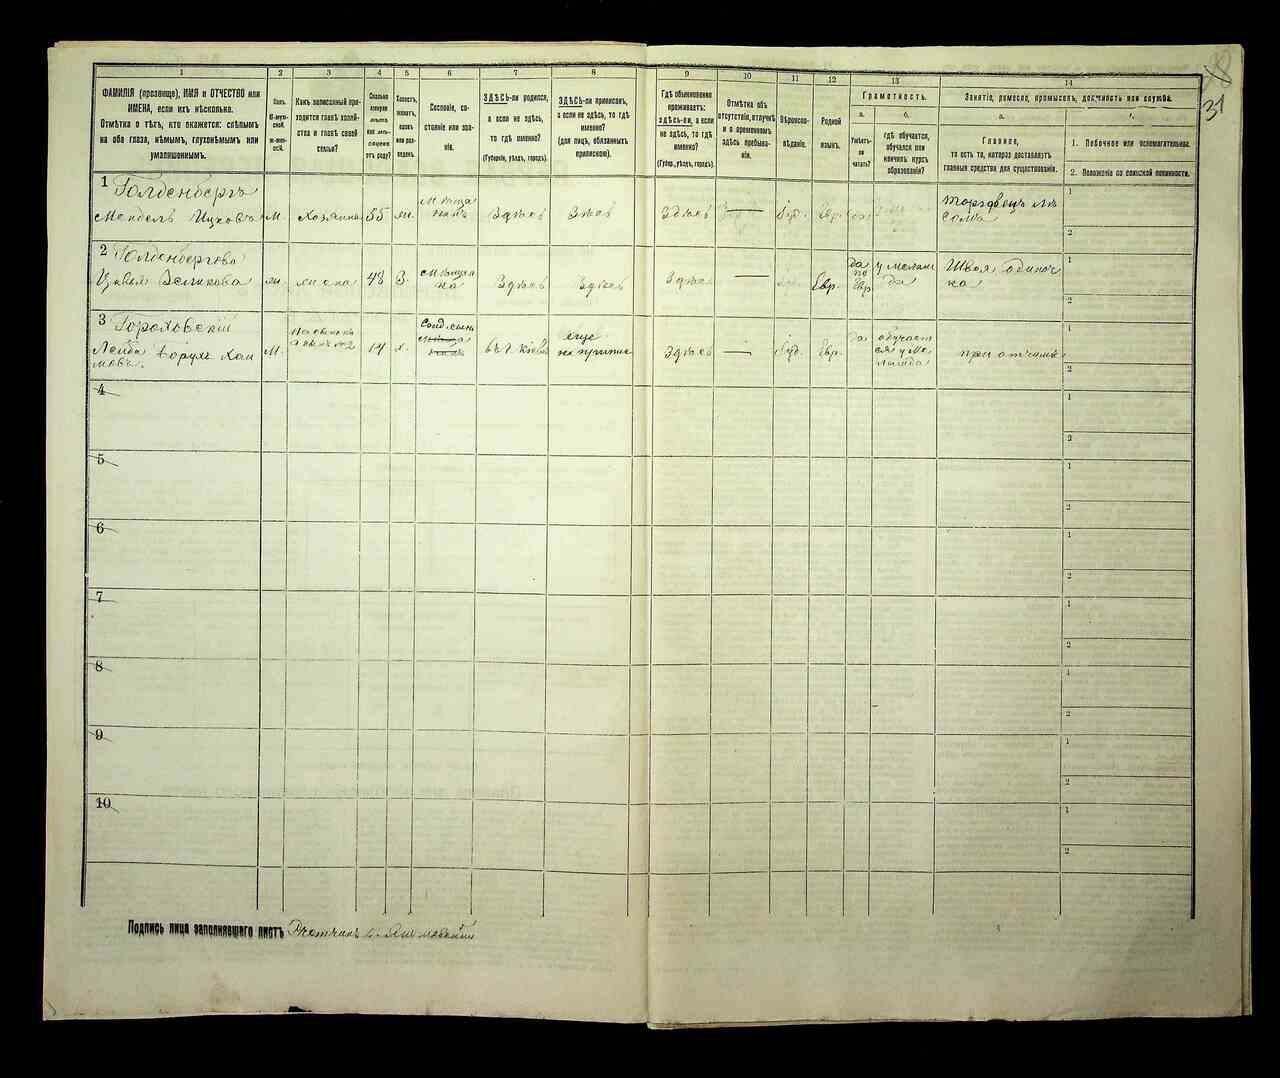 31
1 2 3 4 5 6 7 8 9 10 11 12 13 14
ФАМИЛІЯ (прозвище), ИМЯ и ОТЧЕСТВО или
ИМЕНА, если ихъ нѣсколько.
Отмѣтка о тѣхъ, кто окажется: слѣпымъ
на оба глаза, нѣмымъ, глухонѣмымъ или
умалишеннымъ.
Полъ.
М-муж-
ской.
Ж-жен-
скій.
Какъ записанный при-
ходится главѣ хозяй-
ства и главѣ своей
семьи?
Сколько
минуло
лѣтъ
или мѣ-
сяцевъ
отъ роду?
Холостъ,
женатъ,
вдовъ
или раз-
веденъ.
Сословіе, со-
стояніе или зва-
ніе.
ЗДѢСЬ-ли родился,
а если не здѣсь,
то гдѣ именно?
(Губернія, уѣздъ, городъ).
ЗДѢСЬ-ли приписанъ,
а если не здѣсь, то гдѣ
именно?
(для лицъ, обязанныхъ
припискою).
Гдѣ обыкновенно
проживаетъ:
здѣсь-ли, а если
не здѣсь, то гдѣ
именно?
(Губер., уѣздъ, городъ).
Отмѣтка объ
отсутствіи, отлучкѣ
и о временномъ
здѣсь пребыва-
ніи.
Вѣроиспо-
вѣданіе.
Родной
языкъ.
Грамотность.
а.
Умѣетъ-
ли
читать?
б.
гдѣ обучается,
обучался или
кончилъ курсъ
образованія?
Занятіе, ремесло, промыселъ, должность или служба.
а.
Главное,
то есть то, которое доставляетъ
главныя средства для существованія.
1. Побочное или вспомогательное.
2. Положеніе по воинской повинности.
1 Голденбергъ
Мендель Ицковъ М. Хозяинъ 55 ж. мѣща нинъ Здѣсь Здѣсь Здѣсь — Іуд. Евр. да торговецъ
1
2
2 Голденбергова
ж. жена 48 З. мѣщан ка Здѣсь Здѣсь Здѣсь — Евр. да по Евр у меламе да Швея одиноч ка
1
2
3 Гороховскій
Лейба Борухъ Хаи
мовъ. М. 14 х. въ г. Кіевѣ еще Здѣсь — Іуд. Евр. да обучает ся у ме ламеда при отчимѣ
1
2
4
1
2
5
1
2
6
1
2
7
1
2
8
1
2
9
1
2
10
1
2
Подпись лица заполнявшего листъ